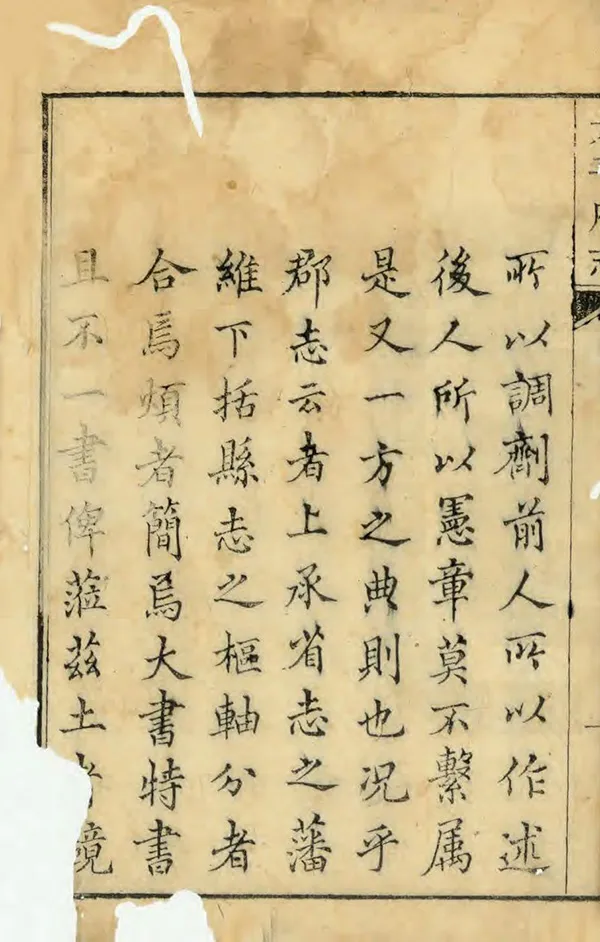 所以調劑前人所以作述
後人所以憲章莫不繫属
是又一方之典則也况乎
郡志云者上承省志之藩
維下括縣志之樞軸分者
合焉煩者簡焉大書特書
且不一書俾蒞兹土者